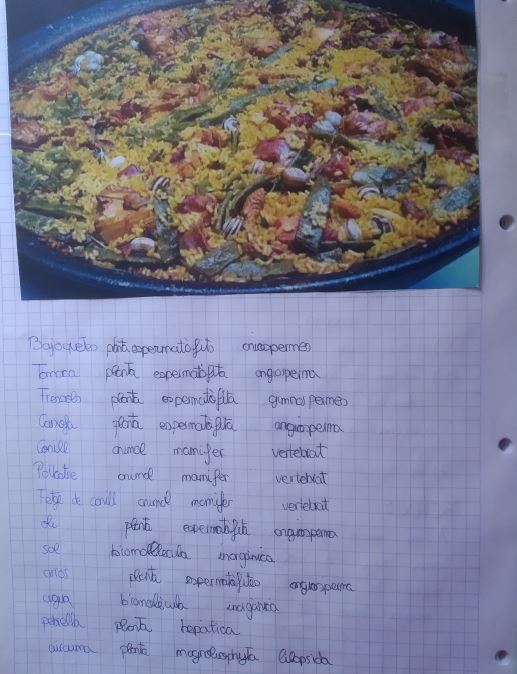 Bajoquetes planta espermatofita angiospermes
Tomaca planta espermatofita angiosperma
Fresols planta espermatofita gimnospermes
Carxofa planta espermatofita angiosperma
Conill animal mamifer vertebrat
Pollastre animal mamifer vertebrat
Fetge de conill animal mamifer vertebrat
oli planta espermatofita angiosperma
sal biomolecula inorgànica
arròs planta espermatofites angiosperma
aigua biomolècula inorgànica
pebrella planta hepatica
cúrcuma planta magnoliophyta liliopsida